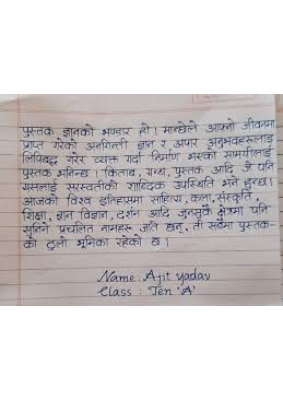 पुस्तक ज्ञानको भण्डार हो। मान्छेले आफ्नो जीवनमा
प्राप्त गरेको अनगिन्ती ज्ञान र अपार अनुभवहरूलाई
लिपिबद्ध गरेर व्यक्त गर्दा निर्माण भएको सामग्रीलाई
पुस्तक भनिन्छ। किताब, ग्रन्थ, पुस्तक आदि जे भने पनि
यसलाई सरस्वतीको शाब्दिक उपस्थिति भने हुन्छ।
आजको विश्व इतिहासमा साहित्य, कला, संस्कृति,
शिक्षा, ज्ञान विज्ञान, दर्शन आदि जुनसुकै क्षेत्रमा पनि
सुनिने प्रचलित नामहरू जति छन्, ती सबैमा पुस्तक-
को ठुलो भूमिका रहेको छ।
Name: Ajit yadav
Class : Ten 'A'